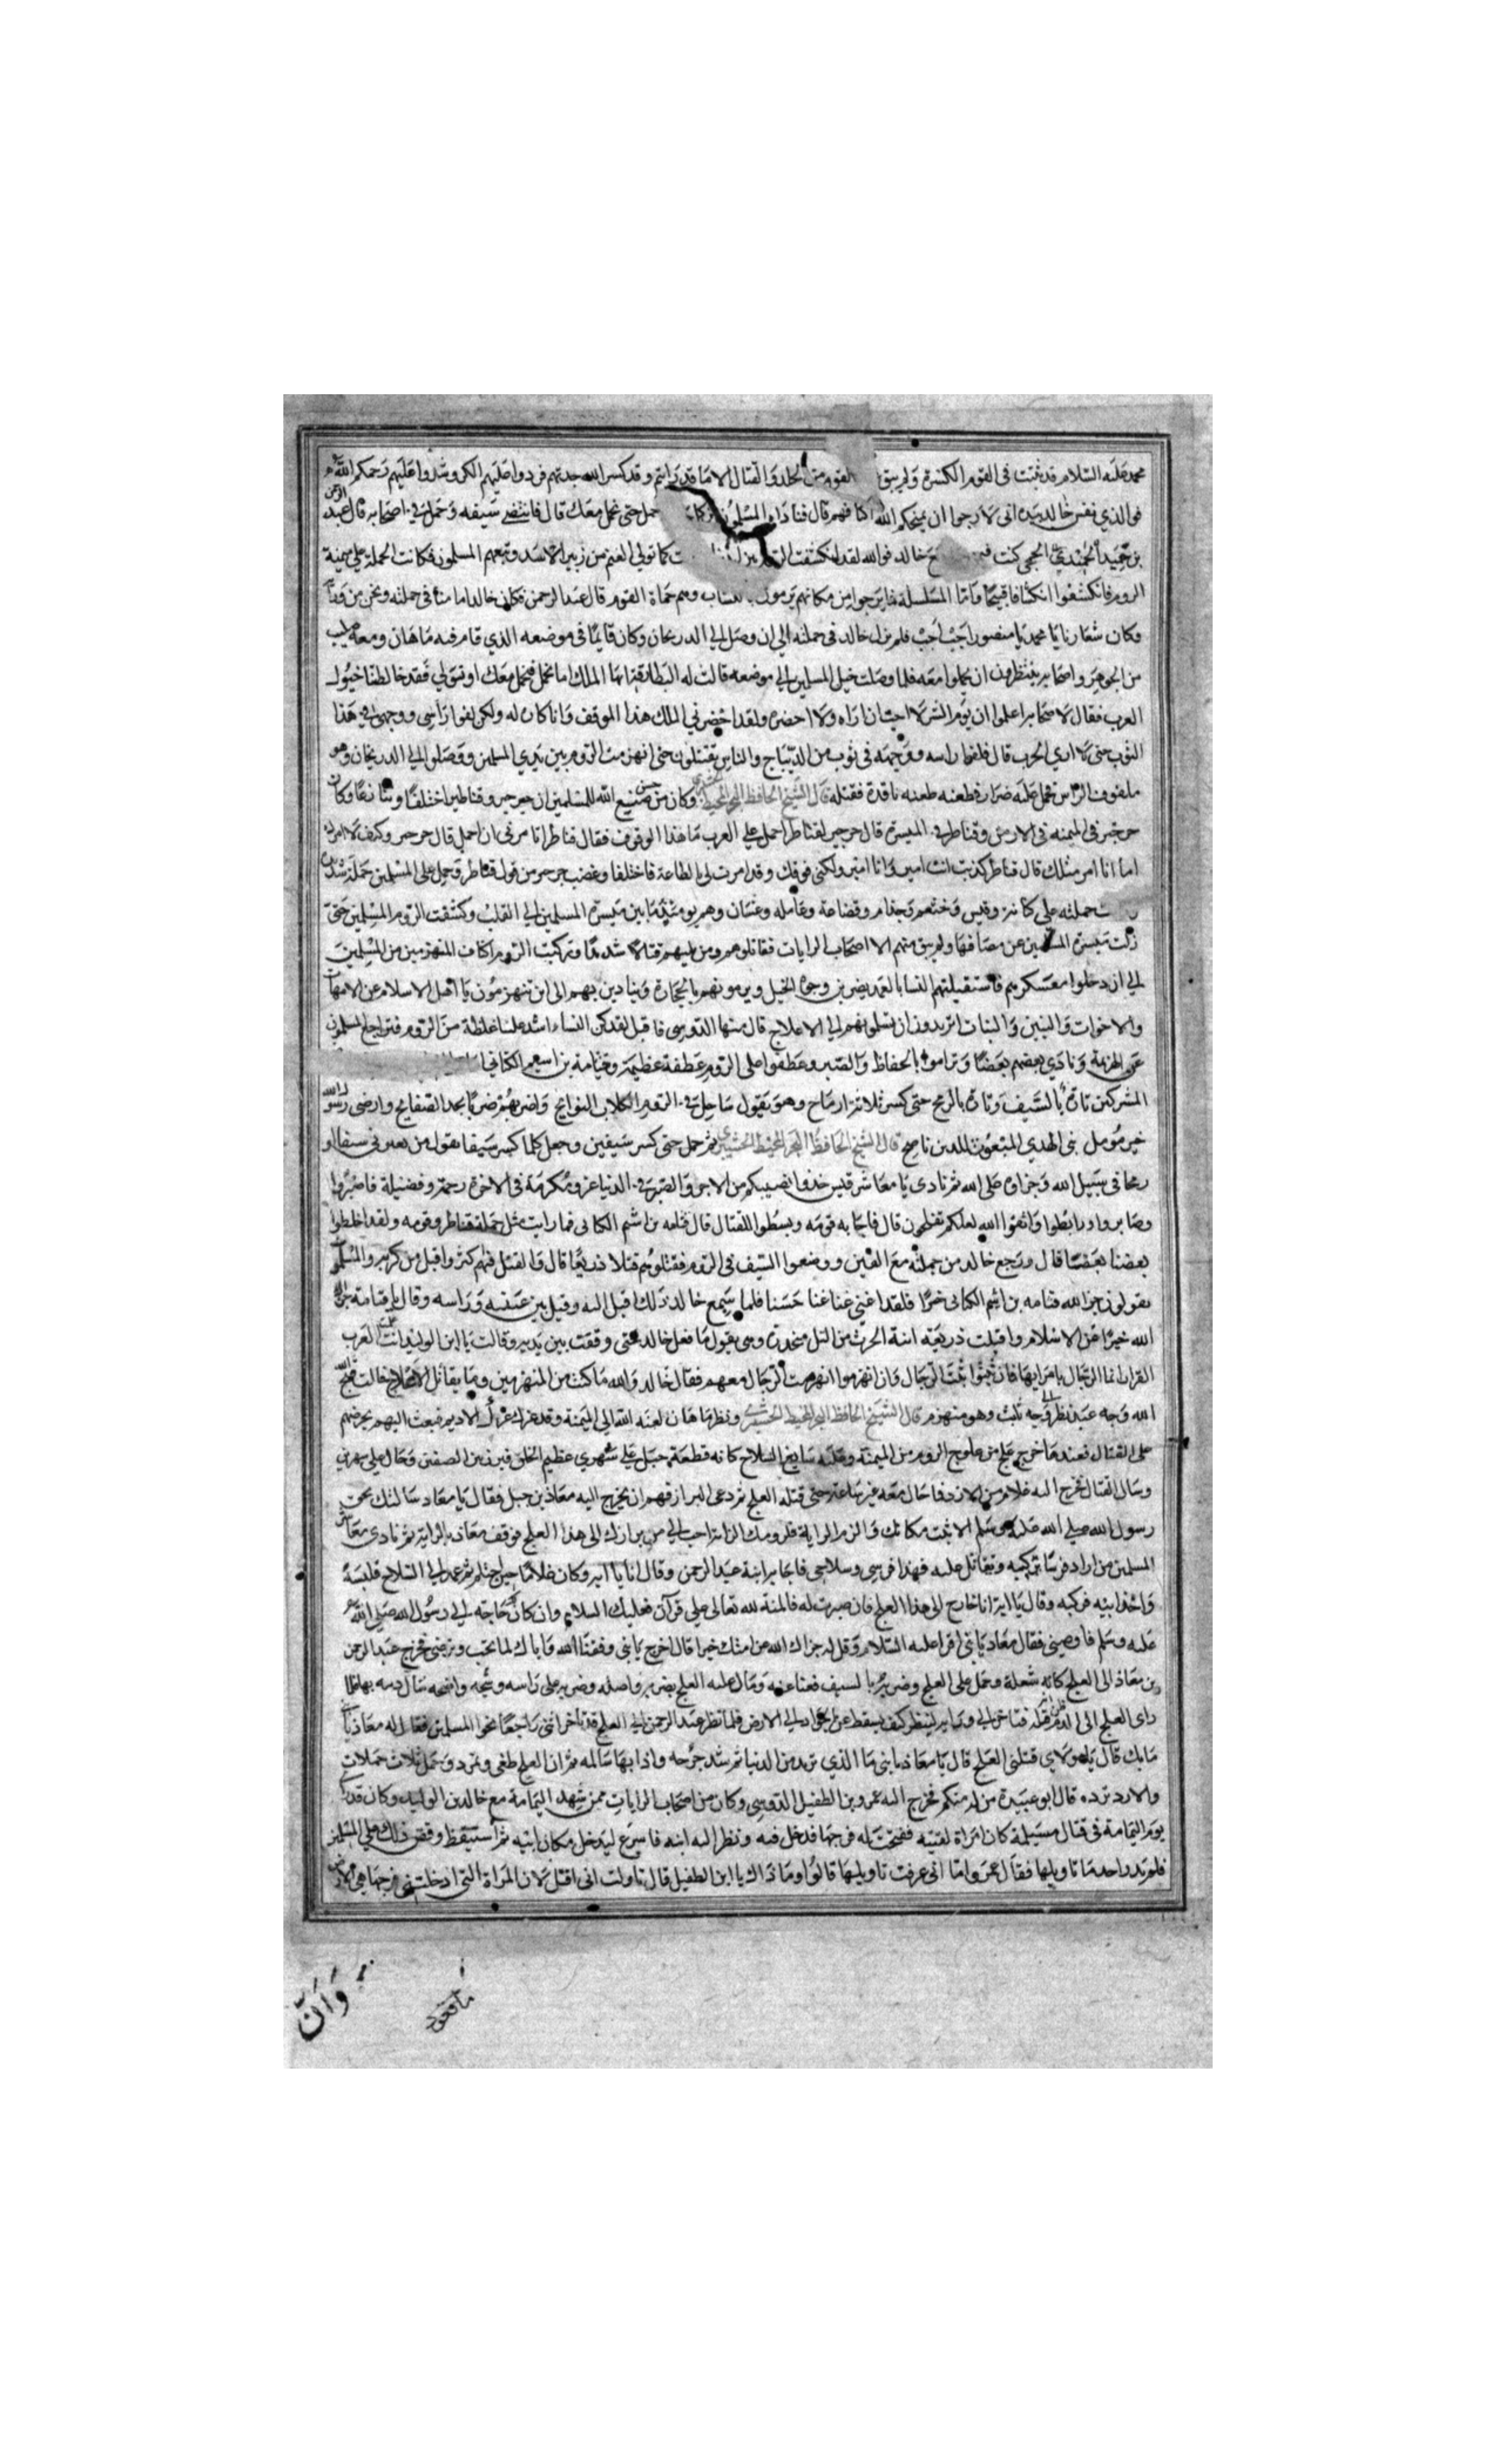 محمد عليه السلام قد ثبتت فى القوم الكسرة ولم يبق القوم من الجلد والقتال الا ما قد رايتم وقد كسر الله حدتهم فردوا عليهم الكر وشدوا عليهم رحمكم الله
فوالذي نفس خالد بيده انى لارجوا ان يمنحكم الله اكتافهم قال فناداه المسلمون احمل حتى نحمل معك قال فانتضى سيفه وحمل في اصحابه قال عبد الرحمن
بن حميد الجمحي كنت خالد فوالله لقد انكشفت الروم كما تولي الغنم من زئير الاسد وتبعهم المسلمون فكانت الحملة علي ميمنة
الروم فانكشفوا انكشافا قبيحا واما المسلسلة فما برحوا من مكانهم يرمون بالنشاب وهم حماة القوم قال عبد الرحمن فكان خالد امامنا فى حملته ونحن من ورائه
وكان شعارنا يا محمد يا منصور اجب اجب فلم يزل خالد فى حملته الي ان وصل الي الدريحان وكان قايما فى موضعه الذي قام فيه ماهان ومعه صليب
من الجوهر واصحابه ينتظرون ان يحملوا معه فلما وصلت خيل المسلمين الي موضعه قالت له البطارقة ايها الملك اما تحمل فنحمل معك او تولي فقد خالطتنا خيول
العرب فقال لاصحابه اعلموا ان يوم الشر لا احب ان اراه ولا احضره ولقد احضرني الملك هذا الموقف وانا كاره له ولكن لفوا راسى ووجهي في هذا
الثوب حتى لا اري الحرب قال فلفوا راسه ووجهه فى ثوب من الديباج والناس يقتتلون حتى انهزمت الروم بين يدي المسلمين ووصلوا الي الدريحان وهو
ملفوف الراس فحمل عليه ضرار فطعنه طعنة نافذة فقتله قال الشيخ الحافظ البحر المحيط وكان من حسن صنيع الله للمسلمين ان جرجير وقناطر اختلفا وتنازعا وكان
جرجير فى الميمنة فى الارمن وقناطر في الميسرة قال جرجير لقناطر احمل علي العرب ما هذا الوقوف فقال قناطر اتامرنى ان احمل قال جرجير وكيف لا امرك
اما انا امر مثلك قال قناطر كذبت انت امير وانا امير ولكنى فوقك وقد امرت لي بالطاعة فاختلفا وغضب جرجير من قول قناطر وحمل على المسلمين حملة شديدة
حملته علي كنانة وقيس وخثعم وجذام وقضاعة وعاملة وغسان وهم يومئذ ما بين ميسرة المسلمين الي القلب وكشفت الروم المسلمين حتى
زالت ميسرة المسلمين عن مصافها ولم يبق منهم الا اصحاب الرايات فقاتلوهم ومن يليهم قتالا شديدا وتركبت الروم اكتاف المنهزمين من المسلمين
الي ان دخلوا معسكرهم فاستقبلتهم النسا بالعمد يضربن وجوه الخيل ويرمونهم بالحجارة وينادين بهم الى اين تنهزمون يا اهل الاسلام عن الامهات
والاخوات والبنين والبنات اتريدون ان تسلمونهم الي الاعلاج قال منهال الدوسى فاقبل لقد كن النساء اشد علينا غلظة من الروم فتراجع المسلمون
عن الهزيمة ونادي بعضهم بعضا وتراموا بالحفاظ والصبر وعطفوا على الروم عطفة عظيمة وقثامة بن اشيم الكنانى
المشركين تارة بالسيف وتارة بالرمح حتى كسر ثلاثة ارماح وهو يقول ساحمل فى الروم الكلاب النوابح واضربهم ضربا بحد الصفايح وارضى رسول الله
خير مؤمل نبى الهدي المبعوث للدين ناصح قال الشيخ الحافظ البحر المحيط ثم حمل حتى كسر سيفين وجعل كلما كسر سيفا يقول من يعيرنى سيفا او
رمحا فى سبيل الله وجزاوه على الله ثم نادى يا معاشر قيس خذوا نصيبكم من الاجر والصبر في الدنيا عز ومكرمة فى الاخرة رحمة وفضيلة فاصبروا
وصابروا ورابطوا واتقوا الله لعلكم تفلحون قال فاجابه قومه وبسطوا للقتال قال قثامه بن اشيم الكنانى فما رايت مثل حملة قناطر وقومه ولقد اختلطوا
بعضنا بعضا قال ورجع خالد من حملته مع الفين ووضعوا السيف فى الروم فقتلوهم قتلا ذريعا قال والقتل فيهم كثر واقبل من كر والمسلمون
يقولون جزا الله قثامه بن اشيم الكنانى خيرا فلقد اغنى عنا غنا حسنا فلما سمع خالد ذلك اقبل اليه وقبل بين عينيه وراسه وقال يا قثامة جزاك
الله خيرا عن الاسلام واقبلت ابنة الحرث من التل منحدرة وهى تقول ما فعل خالد حتى وقفت بين يديه وقالت يا ابن الوليد انت العرب
انما الرجال بامرايها فان ثبتوا ثبت الرجال وان انهزموا انهزمت الرجال معهم فقال خالد والله ما كنت من المنهزمين وما يقاتل قالت قبح الله
وجه عبد نظر الى وجه ثلث وهو منهزم قال الشيخ الحافظ البحر المحيط ونظر ماهان لعنه الله الي الميمنة وقد عركت عرك الاديم فبعث اليهم يحرضهم
على القتال فعندها خرج علج من علوج الروم من الميمنة وعليه سابغ السلاح كانه قطعة جبل علي شهري عظيم الخلق فبرز بين الصفين وجال علي شهري
وسال القتال فخرج اليه غلام من الازد فجال معه غير ساعة حتى قتله العلج ثم دعى البراز فهم ان يخرج اليه معاذ بن جبل فقال يا معاذ سالتك بحق
رسول الله صلي الله عليه وسلم الا ثبت مكانك والزم الراية فلزومك الراية احب الي من برازك الى هذا العلج فوقف معاذ بالراية ثم نادى معاشر
المسلمين من اراد فرسا يركبه ويقاتل عليه فهذا فرسى وسلاحى فاجابه ابنه عبد الرحمن وقال انا يا ابه وكان غلاما حين احتلم ثم عمد الي السلاح فلبسه
واخذ ابيه فركبه وقال يا ابه انا خارج الى هذا العلج فان صبرت له فالمنة لله تعالى علي وان فعليك السلام وان كان لك حاجة الي رسول الله صلي الله
عليه وسلم فاوصينى فقال معاذ يا بنى اقرا عليه السلام وقل له جزاك الله عن امتك خيرا قال اخرج يا بنى وفقنا الله واياك لما يحب ويرضى فخرج عبد الرحمن
بن معاذ الى العلج كانه شعلة وحمل على العلج وضربه بالسيف فنبا عنه ومال عليه العلج بضربة واصله وضربه على راسه وشجه واضحه سال دمه بها فلما
راى العلج الى الدم قد قتله فتاخر الي ورايه لينظر كيف يسقط عن الجواد الي الارض فلما نظر عبد الرحمن الي العلج قد تاخر انثنى راجعا نحو المسلمين فقال له معاذ يا بنى
ما بك قال يا مولاى قتلنى العلج قال يا معاذ يا بنى ما الذي تريد من الدنيا ثم شد جرحه واذا بها سالمة ثم ان العلج طغى وتمرد وحمل ثلاث حملات
والازد ترده قال ابو عبيدة من له منكم فخرج اليه عمرو بن الطفيل الدوسى وكان من اصحاب الرايات ممن شهد اليمامة مع خالد بن الوليد وكان قد راى
يوم اليمامة فى قتال مسيلمة كان امراة لقيته ففتحت له فرجها فدخل فيه ونظر اليه ابنه فاسرع ليدخل مكان ابيه ثم استيقظ وقص ذلك علي المسلمين
فلم يرد واحد ما تاويلها فقال عمرو اما انى عرفت تاويلها قالوا وما ذاك يا ابن الطفيل قال تاولت انى اقتل لان المراة التى ادخلتنى فى فرجها هى الارض
وان